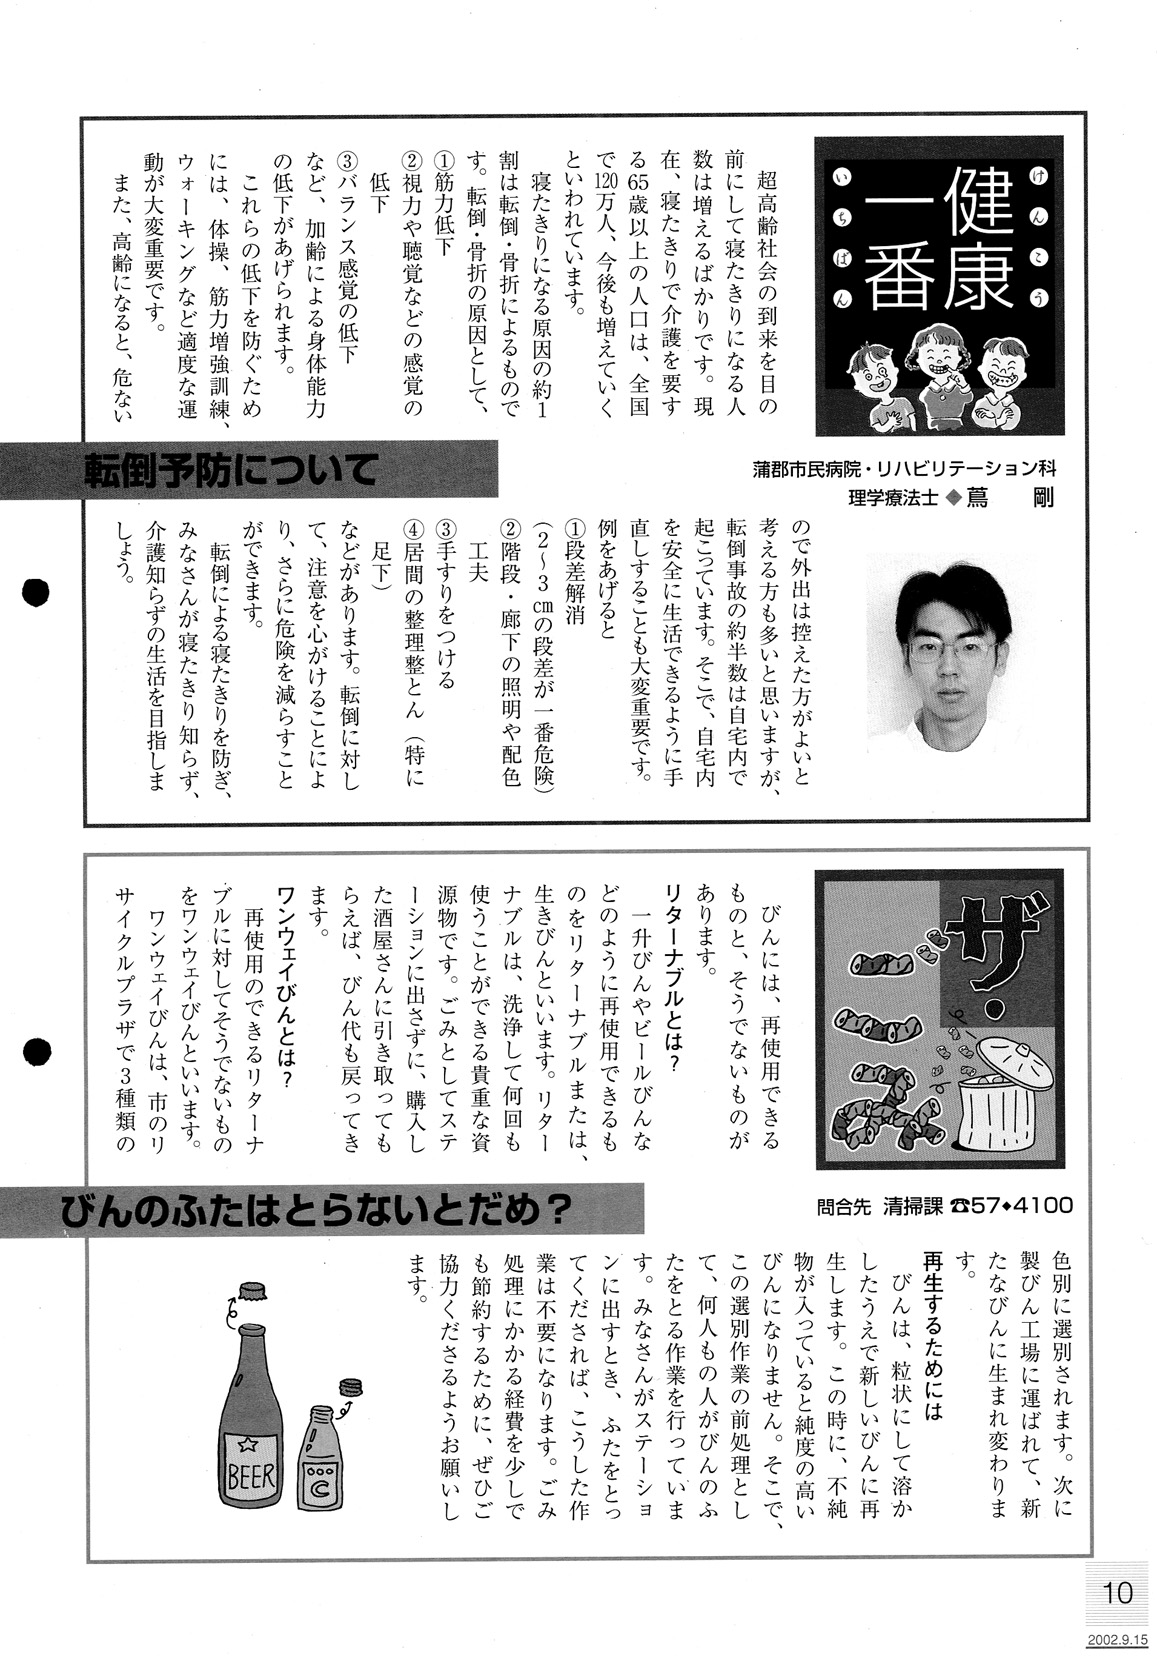 健康
一番
けんこう
いちばん
超高齢社会の到来を目の
前にして寝たきりになる人
数は増えるばかりです。現
在、寝たきりで介護を要す
る65歳以上の人口は、全国
で120万人、今後も増えていく
といわれています。
寝たきりになる原因の約1
割は転倒・骨折によるもので
す。転倒・骨折の原因として、
①筋力低下
②視力や聴覚などの感覚の
低下
③バランス感覚の低下
など、加齢による身体能力
の低下があげられます。
これらの低下を防ぐため
には、体操、筋力増強訓練、
ウォーキングなど適度な運
動が大変重要です。
また、高齢になると、危ない
転倒予防について
蒲郡市民病院・リハビリテーション科
理学療法士◆蔦 剛
ので外出は控えた方がよいと
考える方も多いと思いますが、
転倒事故の約半数は自宅内で
起こっています。そこで、自宅内
を安全に生活できるように手
直しすることも大変重要です。
例をあげると
①段差解消
(2〜3cmの段差が一番危険)
②階段・廊下の照明や配色
工夫
③手すりをつける
④居間の整理整とん(特に
足下)
などがあります。転倒に対し
て、注意を心がけることによ
り、さらに危険を減らすこと
ができます。
転倒による寝たきりを防ぎ、
みなさんが寝たきり知らず、
介護知らずの生活を目指しま
しょう。
ザ・
ごみ
びんには、再使用できる
ものと、そうでないものが
あります。
リターナブルとは?
一升びんやビールびんな
どのように再使用できるも
のをリターナブルまたは、
生きびんといいます。リター
ナブルは、洗浄して何回も
使うことができる貴重な資
源物です。ごみとしてステ
ーションに出さずに、購入し
た酒屋さんに引き取っても
らえば、びん代も戻ってき
ます。
ワンウェイびんとは?
再使用のできるリターナ
ブルに対してそうでないもの
をワンウェイびんといいます。
ワンウェイびんは、市のリ
サイクルプラザで3種類の
びんのふたはとらないとだめ?
問合先 清掃課 ☎57◆4100
色別に選別されます。次に
製びん工場に運ばれて、新
たなびんに生まれ変わりま
す。
再生するためには
びんは、粒状にして溶か
したうえで新しいびんに再
生します。この時に、不純
物が入っていると純度の高い
びんになりません。そこで、
この選別作業の前処理とし
て、何人もの人がびんのふ
たをとる作業を行っていま
す。みなさんがステーショ
ンに出すとき、ふたをとっ
てくだされば、こうした作
業は不要になります。ごみ
処理にかかる経費を少しで
も節約するために、ぜひご
協力くださるようお願いし
ます。
BEER
C
10
2002.9.15